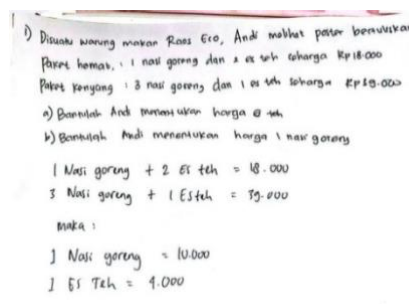 1) Disuatu warung makan Raos Eco, Andi melihat poster bertuliskan
Paket hemat : 1 nasi goreng dan 2 es teh seharga Rp 18.000
Paket kenyang : 3 nasi goreng dan 1 es teh seharga Rp 39.000
a) Bantulah Andi menentukan harga es teh
b) Bantulah Andi menentukan harga 1 nasi goreng
1 Nasi goreng + 2 Es teh = 18.000
3 Nasi goreng + 1 Es teh = 39.000
maka :
1 Nasi goreng = 10.000
1 Es Teh = 4.000